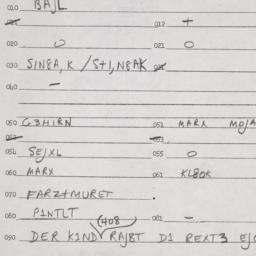 010 BAJL
011 012 +
020 0 021 0
030 S1N8A, K / S+1, N8AK
040 —
050 G3H1RN 051 MARX
052 053
054 SEJXL 055 0
060 MARX 061 KL80K
070 FARZ+MURET .
080 P1NTLT 081 —
(408
090 DER K1ND RAJBT D1 REXT3